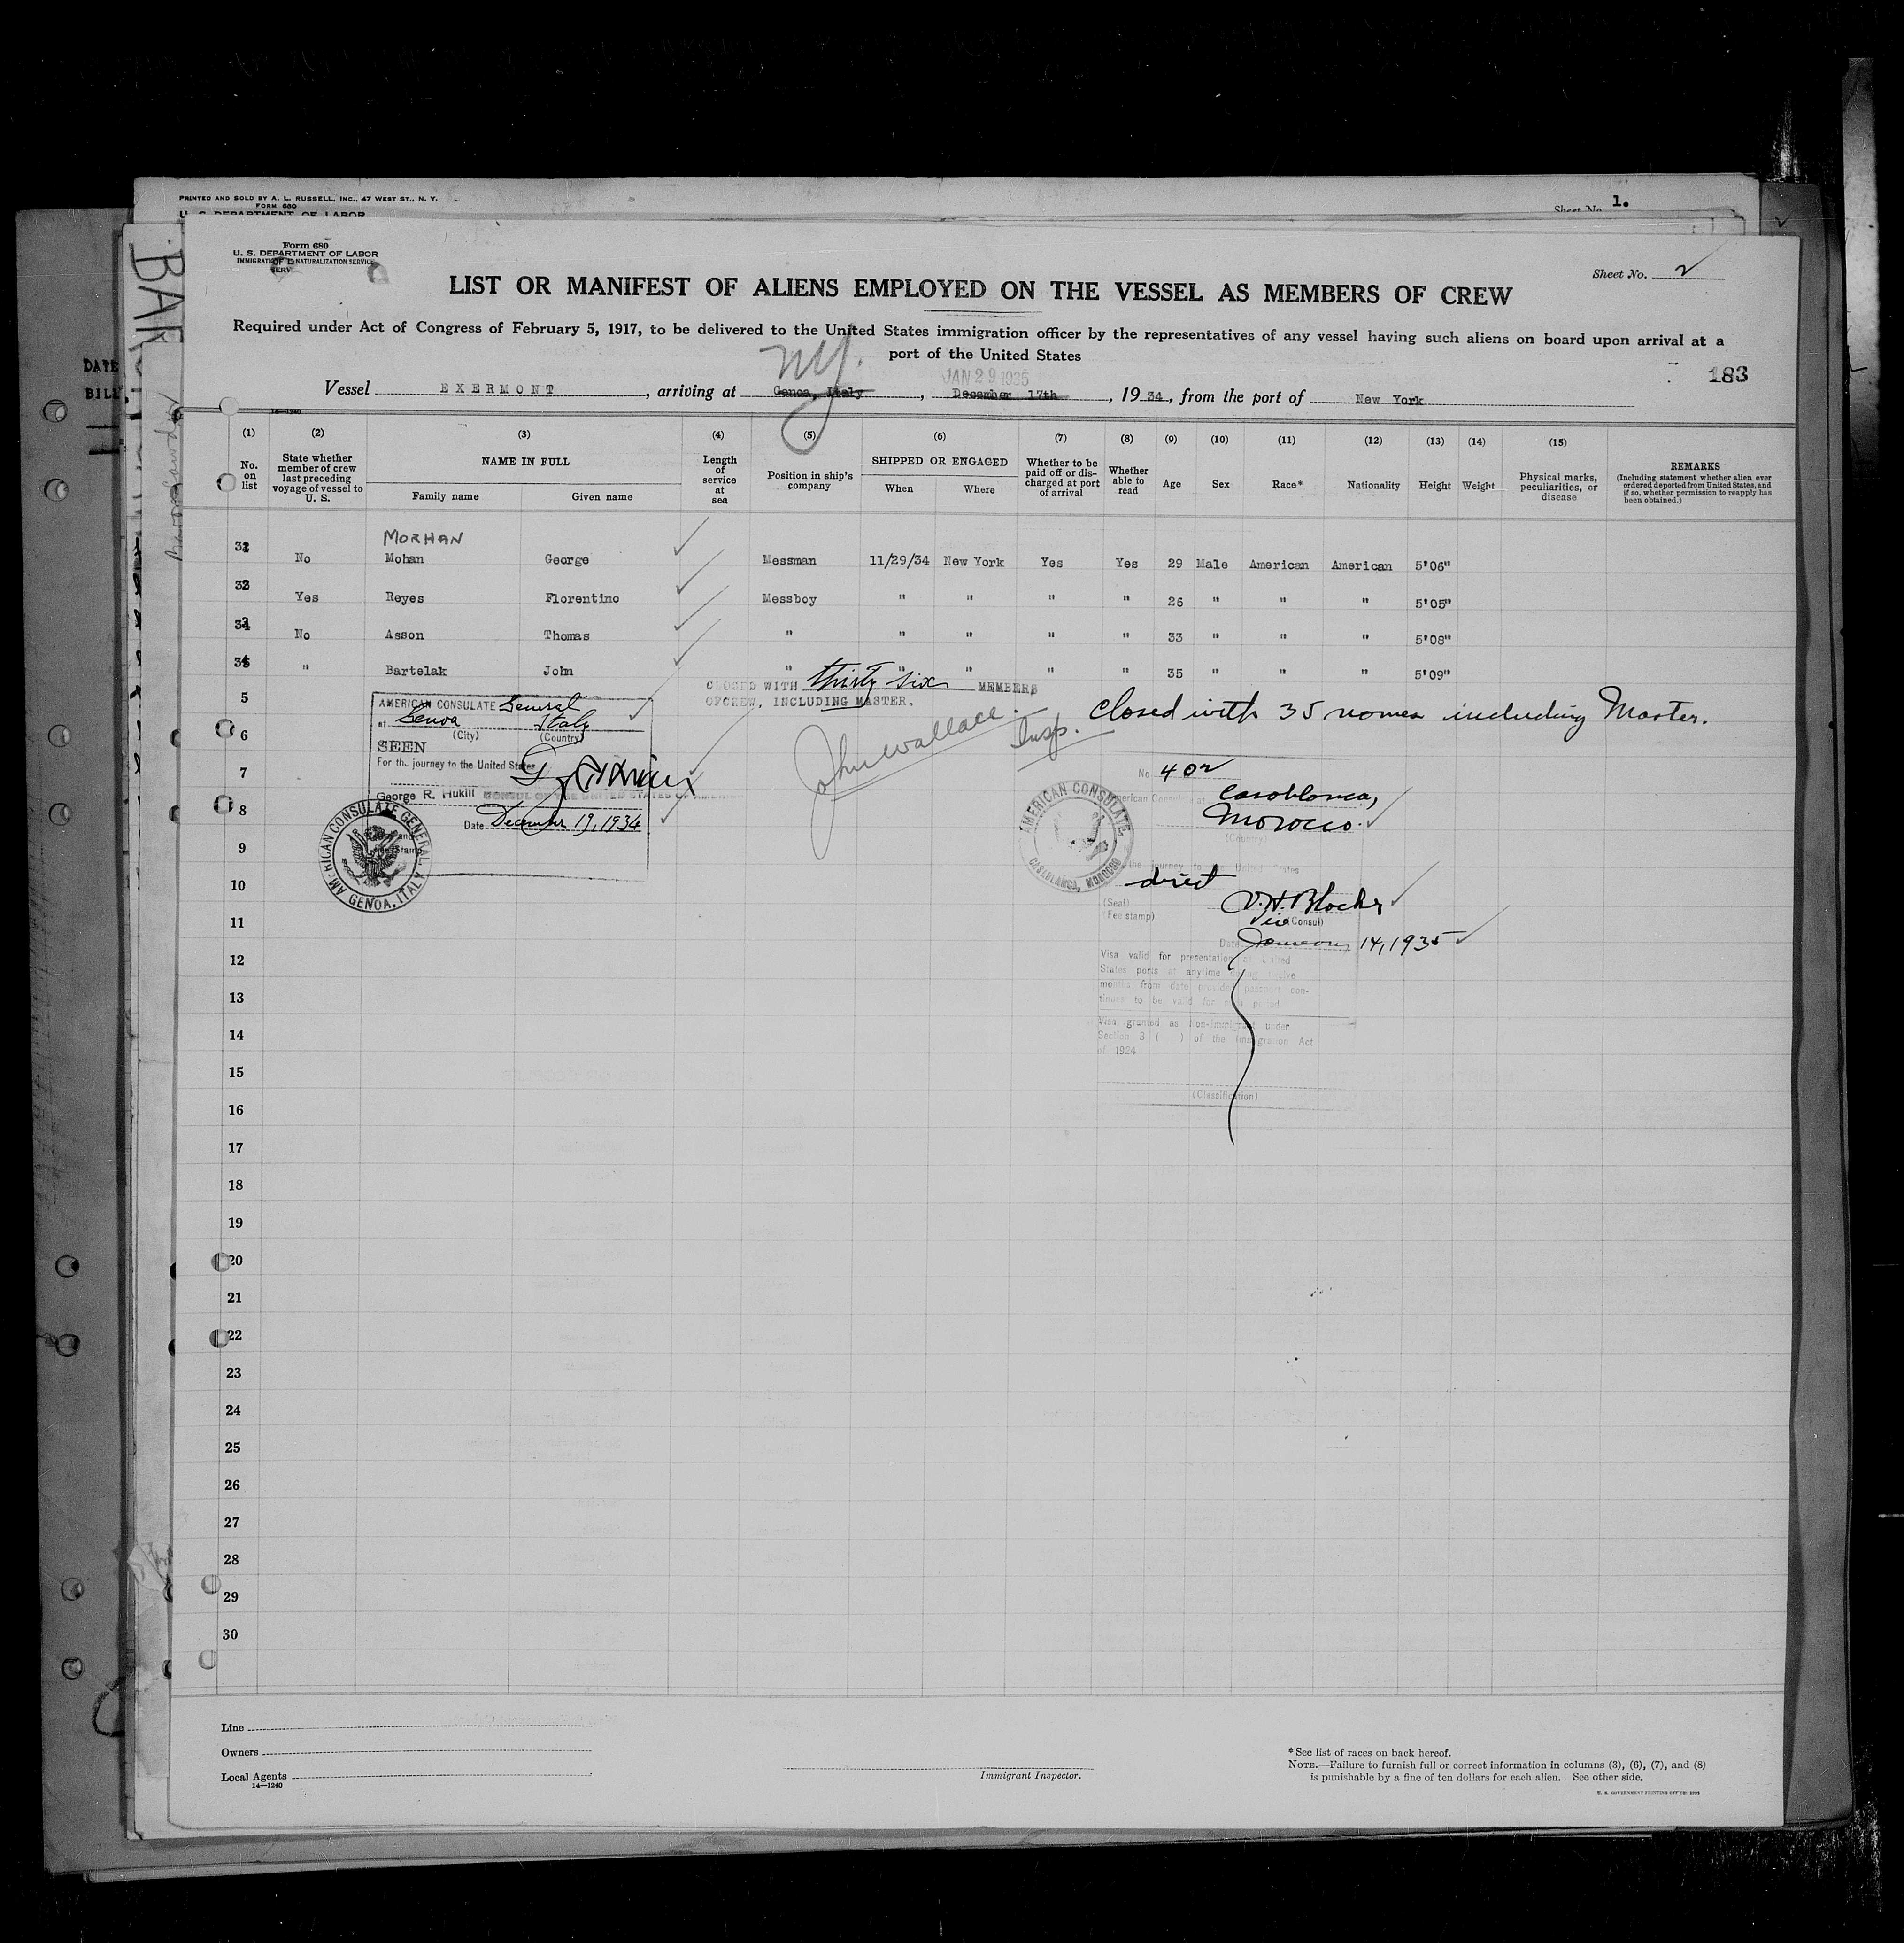 PRINTED AND SOLD BY A. L. RUSSELL, INC., 47 WEST ST., N. Y.
FORM 680
U. S. DEPARTMENT OF LABOR
Sheet No. 1.
BAR
DATE
BILL
Form 680
U. S. DEPARTMENT OF LABOR
IMMIGRATION NATURALIZATION SERVICE
SERV
Sheet No. 2
LIST OR MANIFEST OF ALIENS EMPLOYED ON THE VESSEL AS MEMBERS OF CREW
Required under Act of Congress of February 5, 1917, to be delivered to the United States immigration officer by the representatives of any vessel having such aliens on board upon arrival at a
port of the United States
NY.
JAN 29 1935
183
Vessel EXERMONT, arriving at Genoa, Italy, December 17th, 1934, from the port of New York
14—1240
(1) (2) (3) (4) (5) (6) (7) (8) (9) (10) (11) (12) (13) (14) (15)
No. on list
State whether member of crew last preceding voyage of vessel to U. S.
NAME IN FULL
Family name
Given name
Length of service at sea
Position in ship's company
SHIPPED OR ENGAGED
When
Where
Whether to be paid off or discharged at port of arrival
Whether able to read
Age
Sex
Race*
Nationality
Height
Weight
Physical marks, peculiarities, or disease
REMARKS
(Including statement whether alien ever ordered deported from United States, and if so, whether permission to reapply has been obtained.)
MORHAN
No Mohan George Messman 11/29/34 New York Yes Yes 29 Male American American 5'06"
Yes Reyes Florentino Messboy " " " " 26 " " " 5'05"
No Asson Thomas " " " " " 33 " " " 5'08"
" Bartelak John " " " " " 35 " " " 5'09"
CLOSED WITH thirty six MEMBERS
OFCREW, INCLUDING MASTER.
John Wallace. Insp.
Closed with 35 names including Master.
AMERICAN CONSULATE General
at Genoa Italy
(City) (Country)
SEEN
For the journey to the United States
George R. Hukill CONSUL OF THE UNITED STATES OF AMERICA
Date December 19, 1934
AMERICAN CONSULATE GENERAL
GENOA, ITALY
No. 402
American Consulate at Casablanca,
Morocco.
(Country)
AMERICAN CONSULATE
CASABLANCA, MOROCCO
the journey to the United States
direct
(Seal)
(Fee stamp)
V. H. Blocker
Vice (Consul)
Date January 14, 1935
Visa valid for presentation at United
States ports at anytime during twelve
months from date provided passport con-
tinues to be valid for such period
Visa granted as Non-Immigrant under
Section 3 ( ) of the Immigration Act
of 1924
(Classification)
5
6
7
8
9
10
11
12
13
14
15
16
17
18
19
20
21
22
23
24
25
26
27
28
29
30
Line
Owners
Local Agents
14—1240
Immigrant Inspector.
*See list of races on back hereof.
NOTE.—Failure to furnish full or correct information in columns (3), (6), (7), and (8)
is punishable by a fine of ten dollars for each alien. See other side.